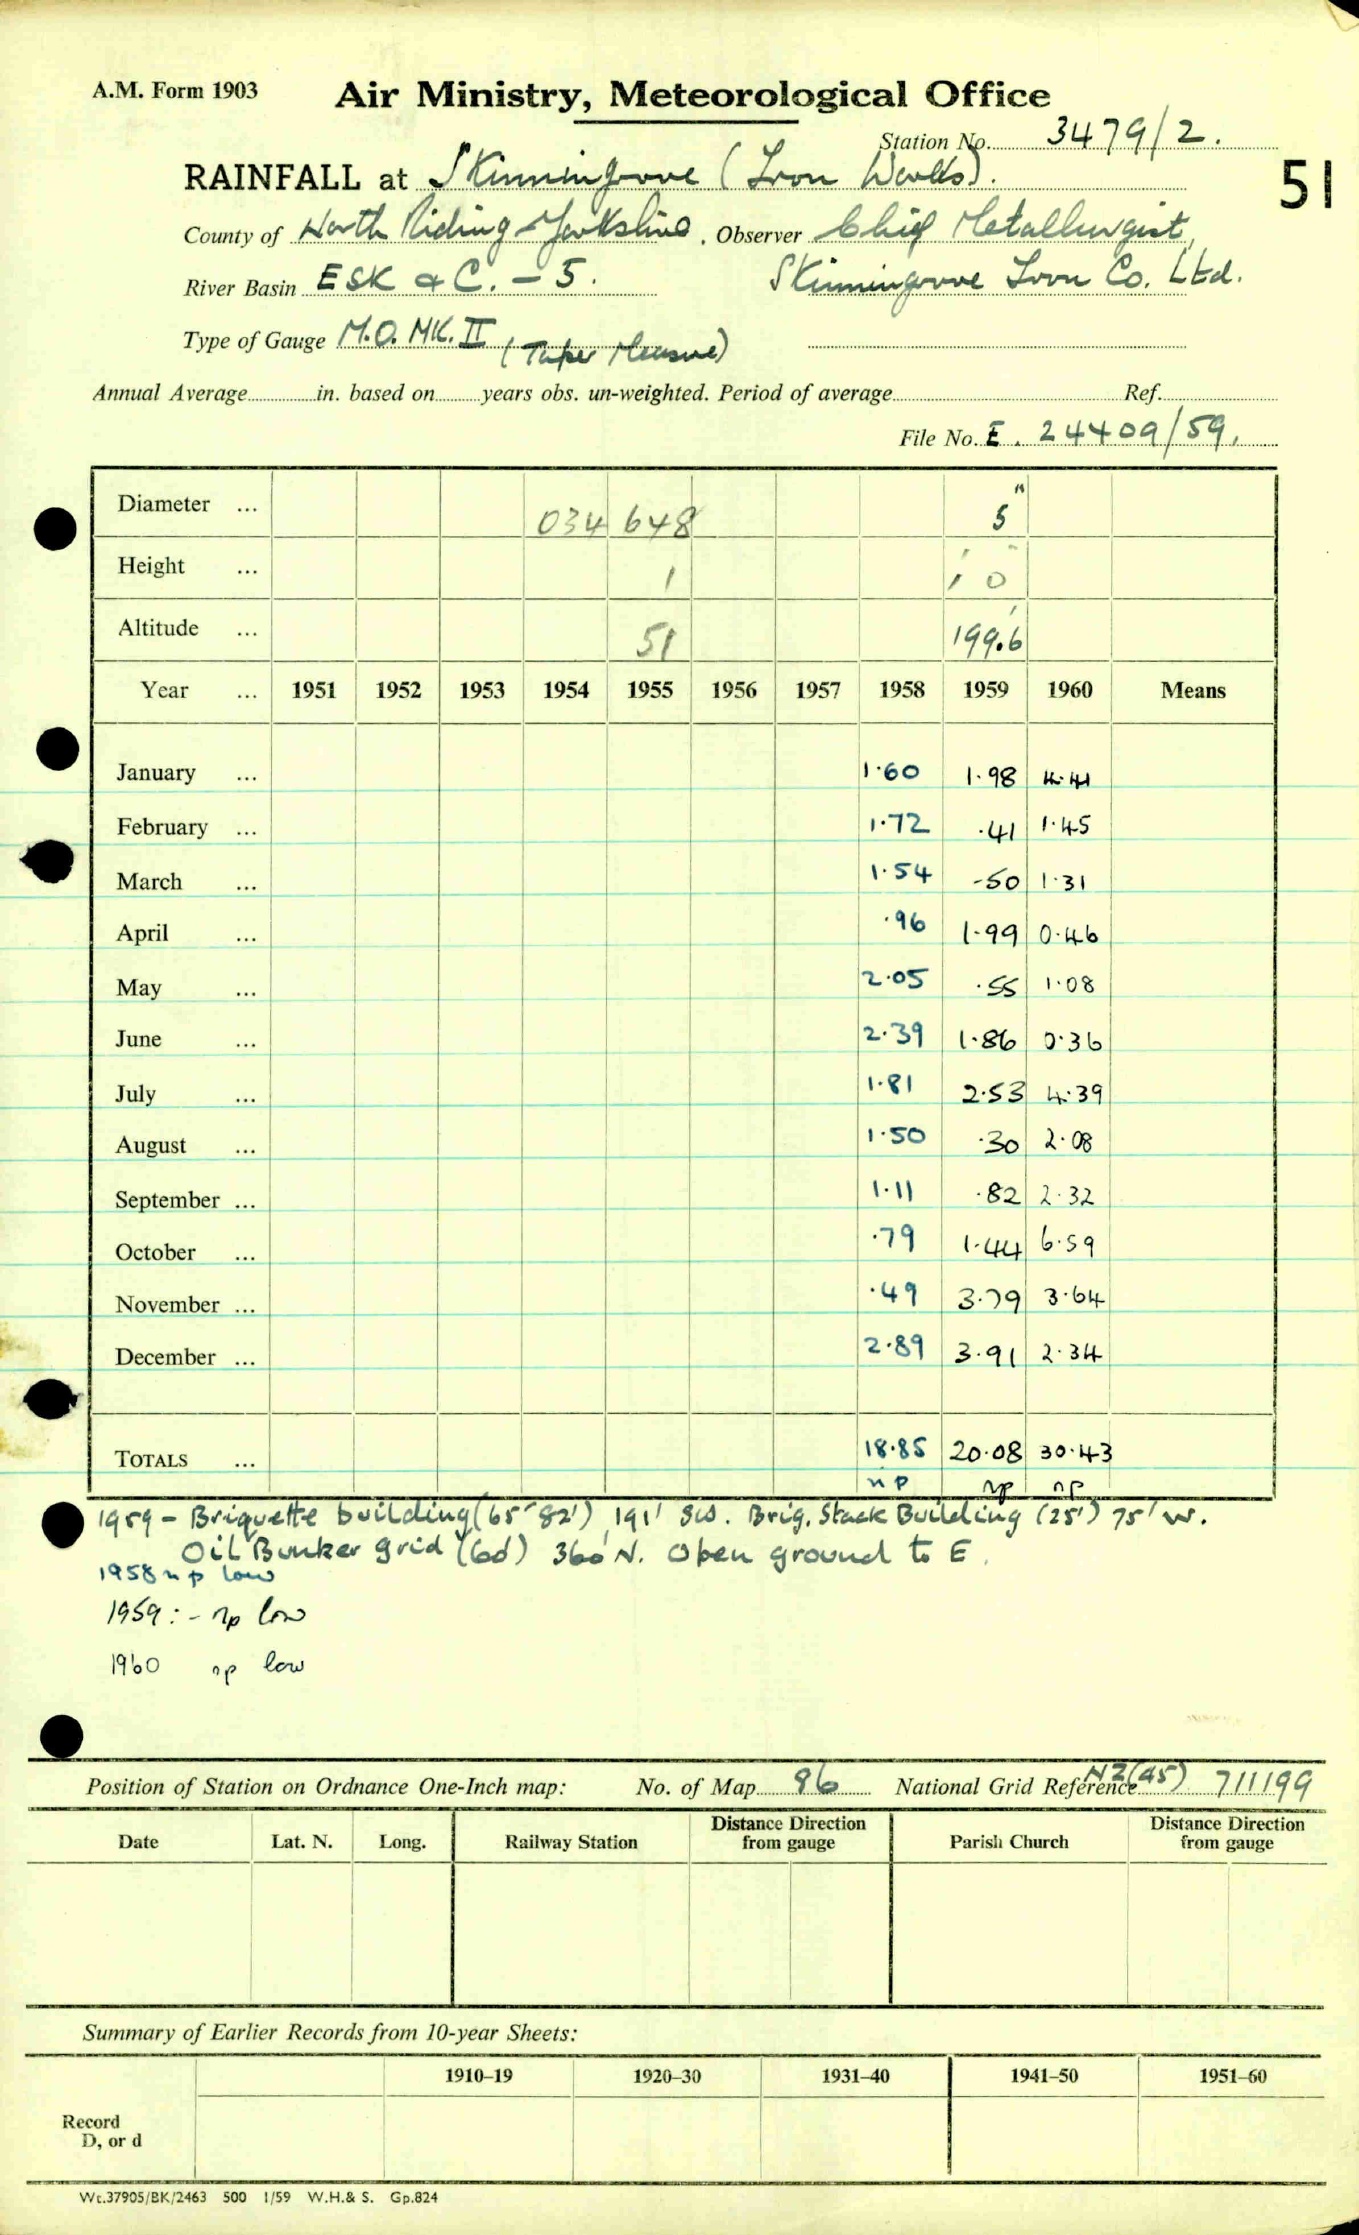 A.M. Form 1903
Air Ministry, Meteorological Office
Station No. 3479/2.
RAINFALL at Skinningrove (Iron Works).
51
County of North Riding Yorkshire, Observer Chief Metallurgist,
River Basin ESK & C. - 5. Skinningrove Iron Co. Ltd.
Type of Gauge M.O. MK. II (Taper Measure)
Annual Average in. based on years obs. un-weighted. Period of average Ref.
File No. E. 24409/59.
Diameter ... 034 648 5"
Height ... 1 1' 0"
Altitude ... 51 199.6'
Year ... 1951 1952 1953 1954 1955 1956 1957 1958 1959 1960 Means
January ... 1·60 1·98 4·41
February ... 1·72 ·41 1·45
March ... 1·54 ·50 1·31
April ... ·96 1·99 0·46
May ... 2·05 ·55 1·08
June ... 2·39 1·86 0·36
July ... 1·81 2·53 4·39
August ... 1·50 ·30 2·08
September ... 1·11 ·82 2·32
October ... ·79 1·44 6·59
November ... ·49 3·79 3·64
December ... 2·89 3·91 2·34
TOTALS ... 18·85 20·08 30·43
np np np
1959 - Briquette building (65' 82') 191' SW. Brig. Stack Building (25') 75' W.
Oil Bunker grid (60') 360' N. Open ground to E.
1958 np low
1959 :- np low
1960 np low
Position of Station on Ordnance One-Inch map: No. of Map 86 National Grid Reference NZ(45) 711199
Date Lat. N. Long. Railway Station Distance Direction from gauge Parish Church Distance Direction from gauge
Summary of Earlier Records from 10-year Sheets:
1910–19 1920–30 1931–40 1941–50 1951–60
Record
D, or d
Wt.37905/BK/2463 500 1/59 W.H.& S. Gp.824